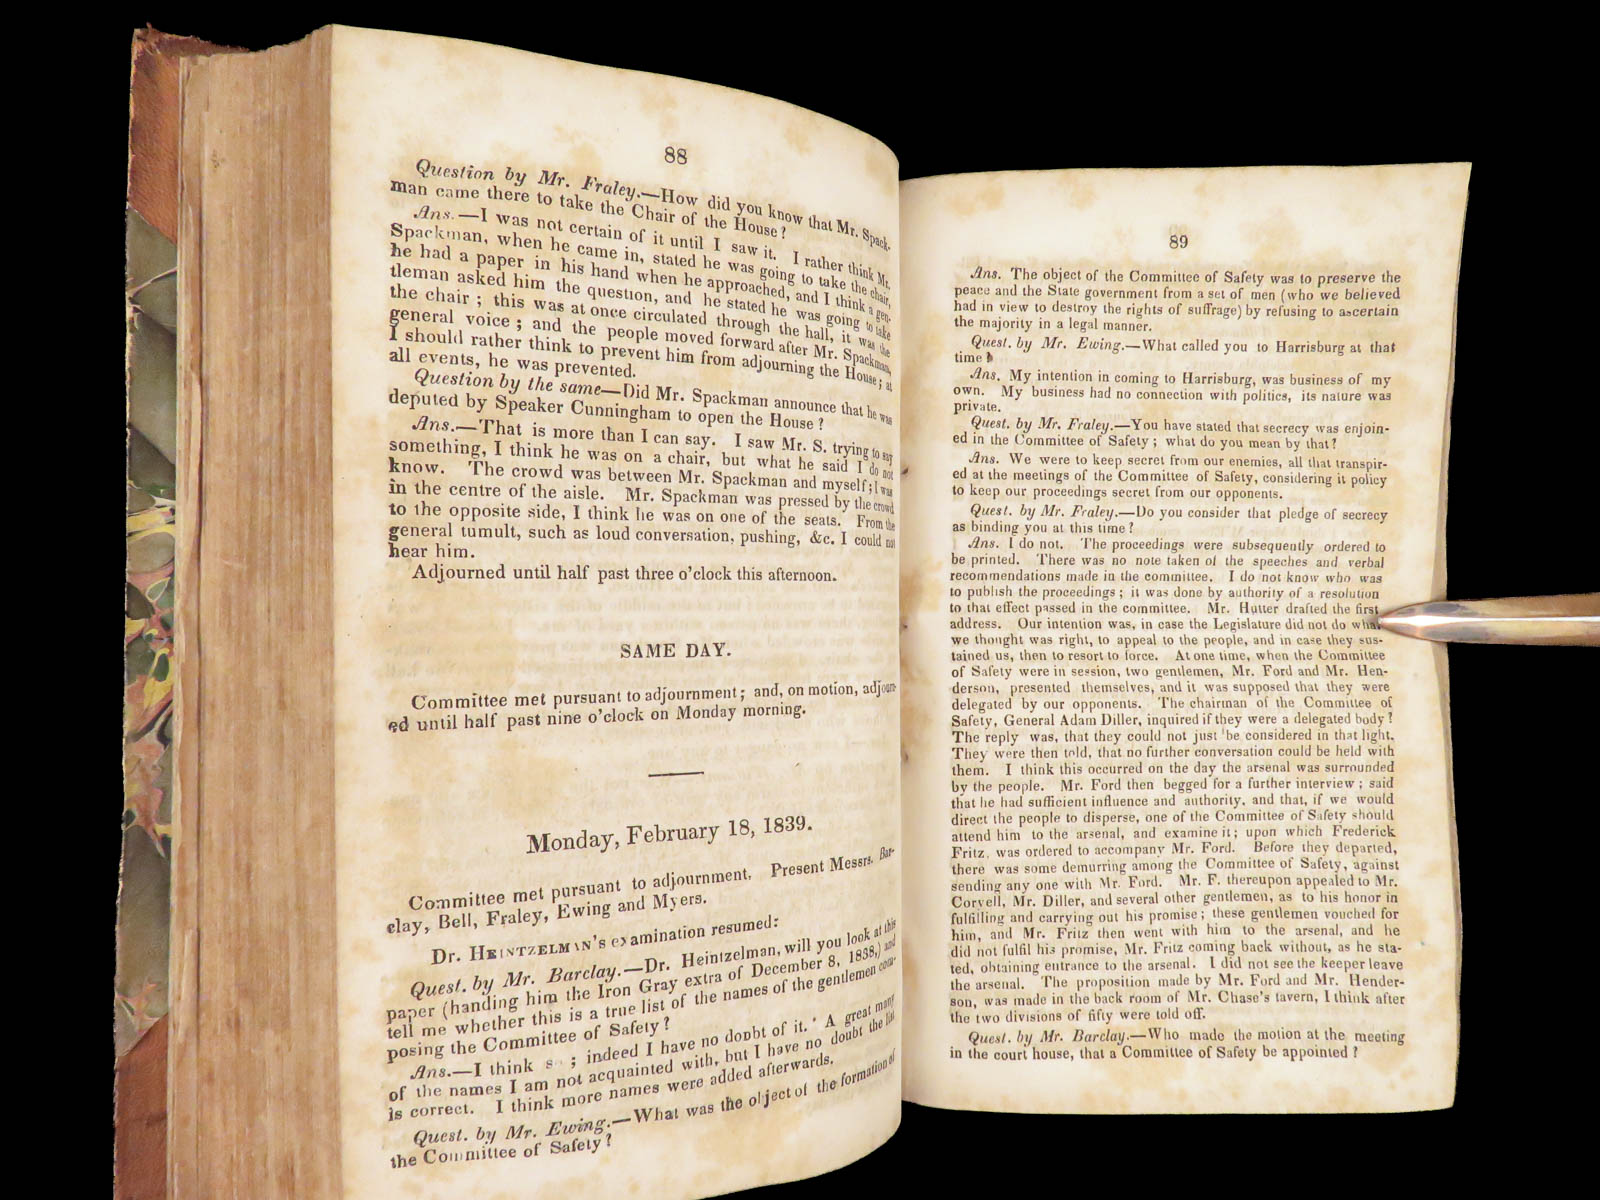 88
Question by Mr. Fraley.—How did you know that Mr. Spack-
man came there to take the Chair of the House?
Ans.—I was not certain of it until I saw it. I rather think Mr.
Spackman, when he came in, stated he was going to take the chair,
he had a paper in his hand when he approached, and I think a gen-
tleman asked him the question, and he stated he was going to take
the chair; this was at once circulated through the hall, it was the
general voice; and the people moved forward after Mr. Spackman,
I should rather think to prevent him from adjourning the House; at
all events, he was prevented.
Question by the same—Did Mr. Spackman announce that he was
deputed by Speaker Cunningham to open the House?
Ans.—That is more than I can say. I saw Mr. S. trying to say
something, I think he was on a chair, but what he said I do not
know. The crowd was between Mr. Spackman and myself; I was
in the centre of the aisle. Mr. Spackman was pressed by the crowd
to the opposite side, I think he was on one of the seats. From the
general tumult, such as loud conversation, pushing, &c. I could not
hear him.
Adjourned until half past three o'clock this afternoon.
SAME DAY.
Committee met pursuant to adjournment; and, on motion, adjourn-
ed until half past nine o'clock on Monday morning.
Monday, February 18, 1839.
Committee met pursuant to adjournment. Present Messrs. Bar-
clay, Bell, Fraley, Ewing and Myers.
Dr. HEINTZELMAN's examination resumed:
Quest. by Mr. Barclay.—Dr. Heintzelman, will you look at this
paper (handing him the Iron Gray extra of December 8, 1838,) and
tell me whether this is a true list of the names of the gentlemen com-
posing the Committee of Safety?
Ans.—I think so; indeed I have no doubt of it. A great many
of the names I am not acquainted with, but I have no doubt the list
is correct. I think more names were added afterwards.
Quest. by Mr. Ewing.—What was the object of the formation of
the Committee of Safety?
89
Ans. The object of the Committee of Safety was to preserve the
peace and the State government from a set of men (who we believed
had in view to destroy the rights of suffrage) by refusing to ascertain
the majority in a legal manner.
Quest. by Mr. Ewing.—What called you to Harrisburg at that
time?
Ans. My intention in coming to Harrisburg, was business of my
own. My business had no connection with politics, its nature was
private.
Quest. by Mr. Fraley.—You have stated that secrecy was enjoin-
ed in the Committee of Safety; what do you mean by that?
Ans. We were to keep secret from our enemies, all that transpir-
ed at the meetings of the Committee of Safety, considering it policy
to keep our proceedings secret from our opponents.
Quest. by Mr. Fraley.—Do you consider that pledge of secrecy
as binding you at this time?
Ans. I do not. The proceedings were subsequently ordered to
be printed. There was no note taken of the speeches and verbal
recommendations made in the committee. I do not know who was
to publish the proceedings; it was done by authority of a resolution
to that effect passed in the committee. Mr. Hutter drafted the first
address. Our intention was, in case the Legislature did not do what
we thought was right, to appeal to the people, and in case they sus-
tained us, then to resort to force. At one time, when the Committee
of Safety were in session, two gentlemen, Mr. Ford and Mr. Hen-
derson, presented themselves, and it was supposed that they were
delegated by our opponents. The chairman of the Committee of
Safety, General Adam Diller, inquired if they were a delegated body?
The reply was, that they could not just be considered in that light.
They were then told, that no further conversation could be held with
them. I think this occurred on the day the arsenal was surrounded
by the people. Mr. Ford then begged for a further interview; said
that he had sufficient influence and authority, and that, if we would
direct the people to disperse, one of the Committee of Safety should
attend him to the arsenal, and examine it; upon which Frederick
Fritz, was ordered to accompany Mr. Ford. Before they departed,
there was some demurring among the Committee of Safety, against
sending any one with Mr. Ford. Mr. F. thereupon appealed to Mr.
Coryell, Mr. Diller, and several other gentlemen, as to his honor in
fulfilling and carrying out his promise; these gentlemen vouched for
him, and Mr. Fritz then went with him to the arsenal, and he
did not fulfil his promise, Mr. Fritz coming back without, as he sta-
ted, obtaining entrance to the arsenal. I did not see the keeper leave
the arsenal. The proposition made by Mr. Ford and Mr. Hender-
son, was made in the back room of Mr. Chase's tavern, I think after
the two divisions of fifty were told off.
Quest. by Mr. Barclay.—Who made the motion at the meeting
in the court house, that a Committee of Safety be appointed?